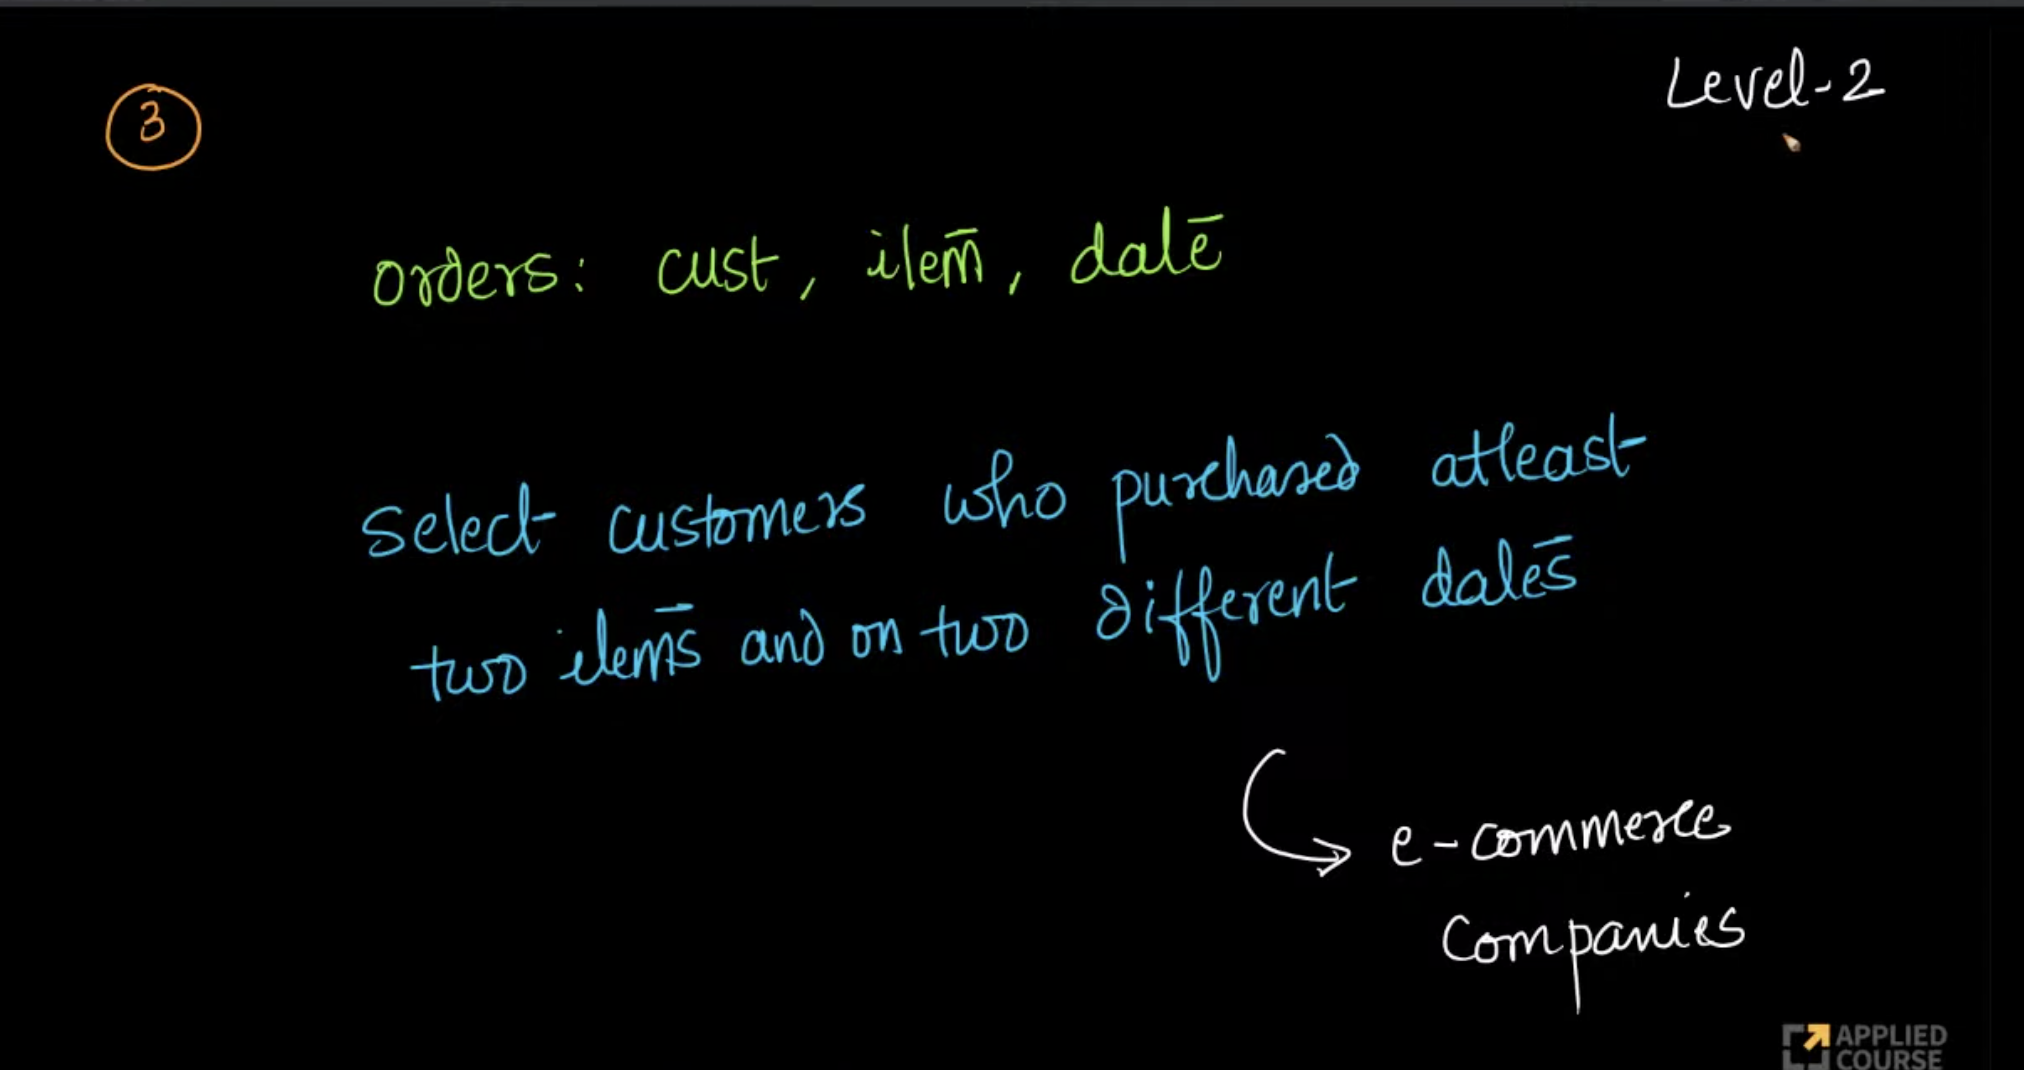 3
Level-2
orders: cust, item, date
select customers who purchased atleast
two items and on two different dates
e-commerce
companies
APPLIED
COURSE